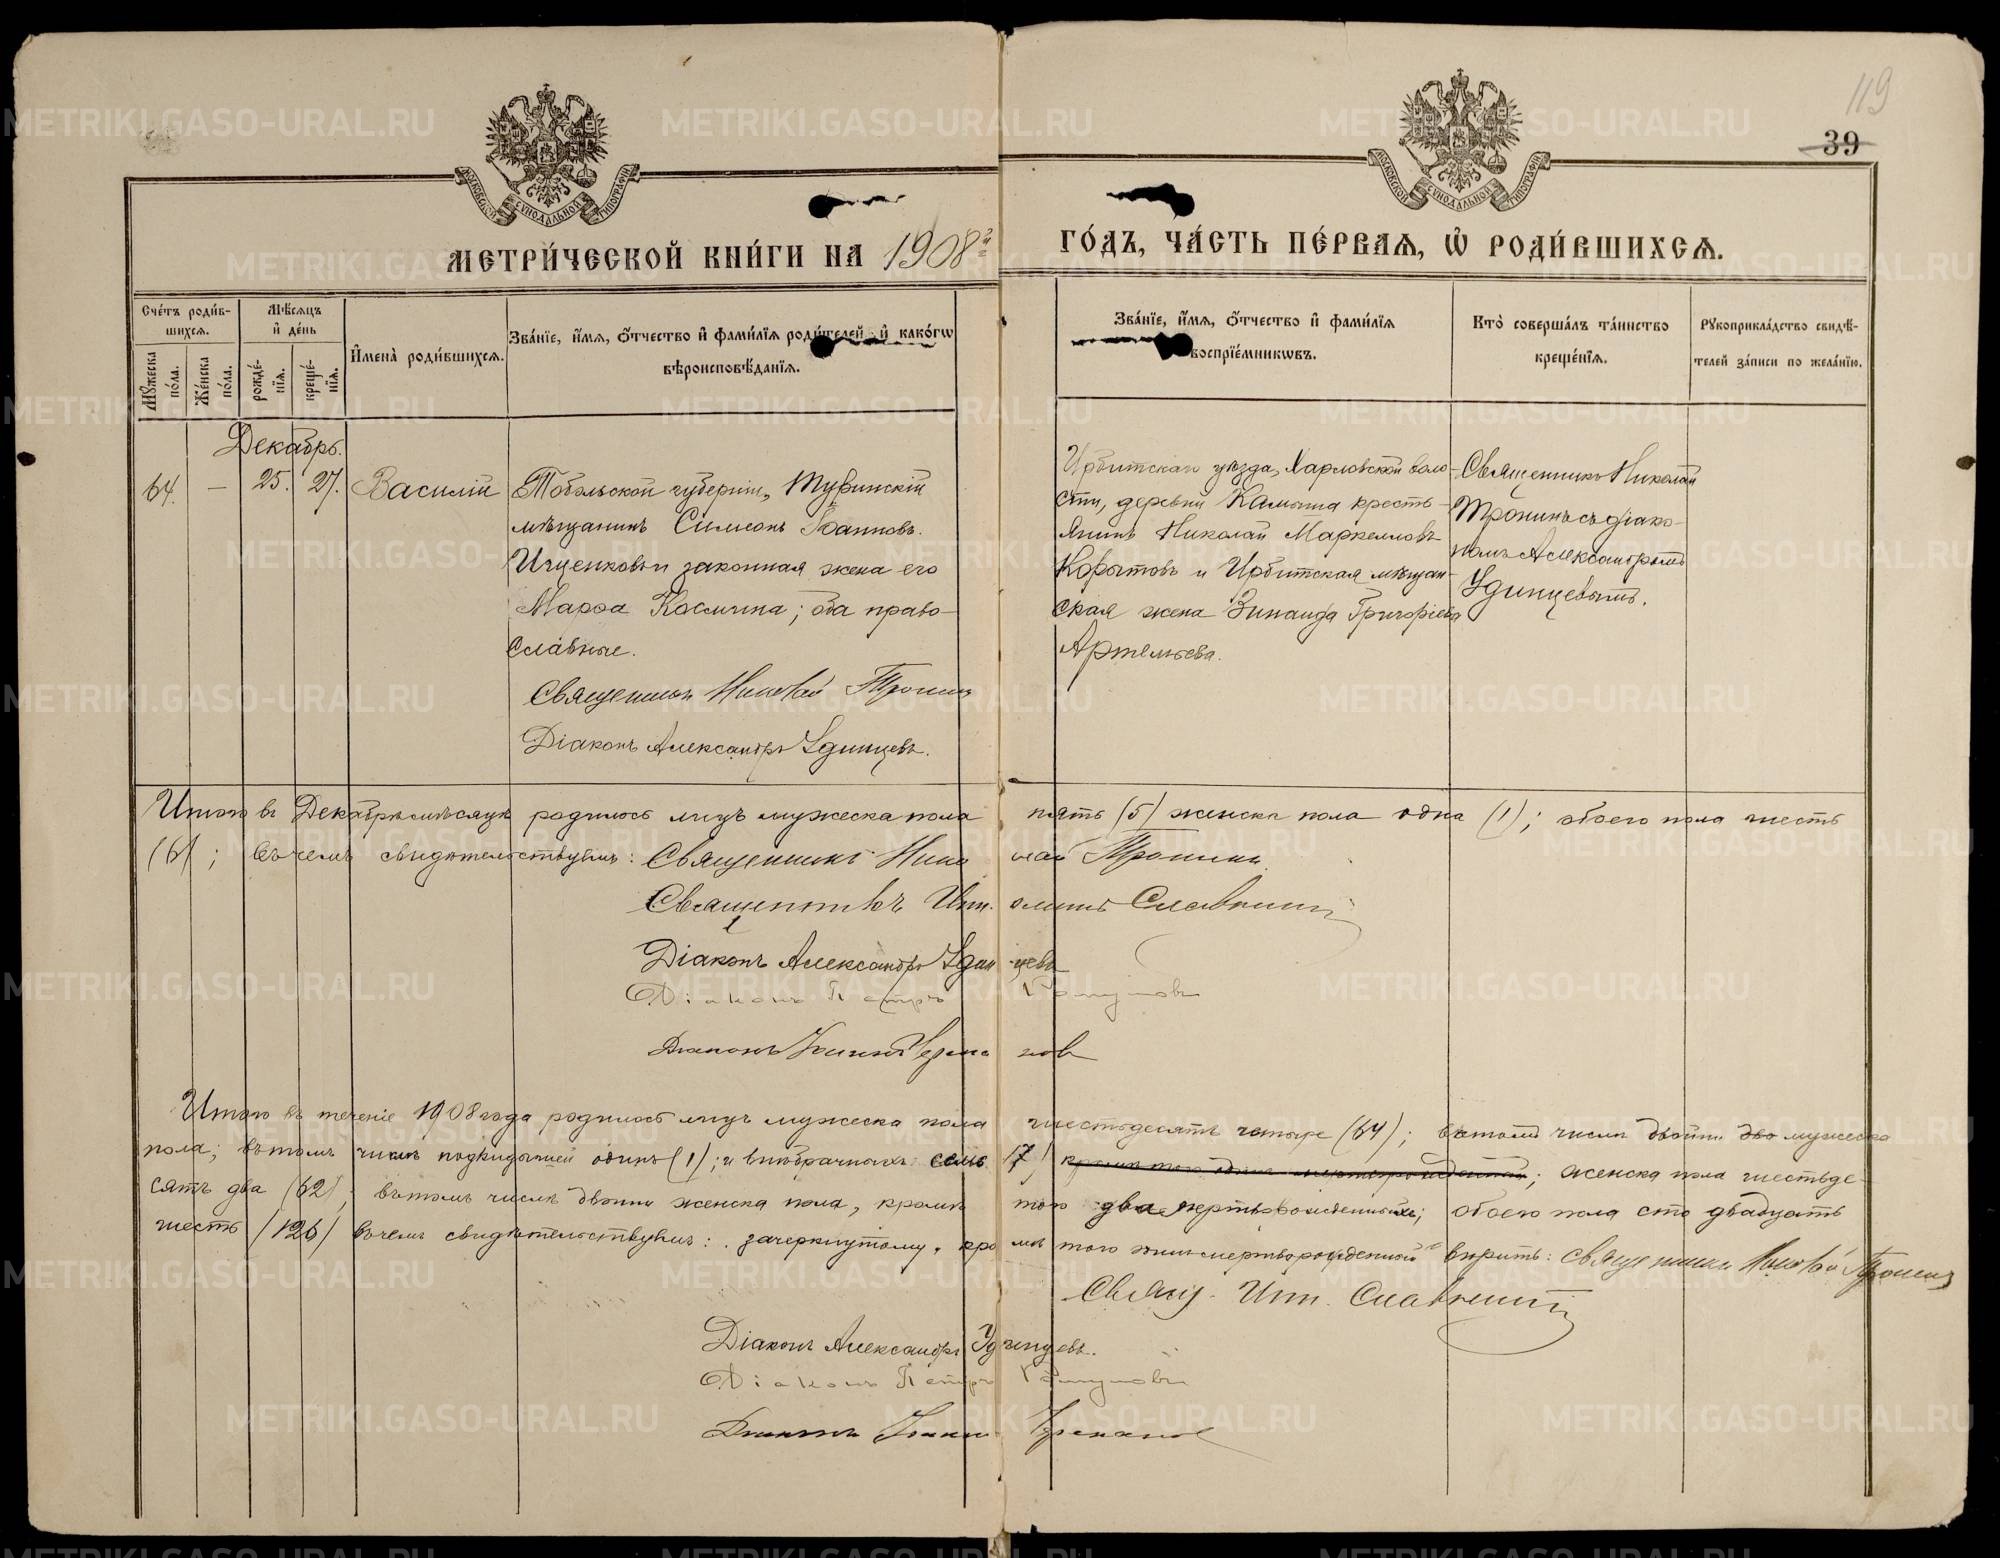 119
39
МОСКОВСКОЙ СѴНОДАЛЬНОЙ ТИПОГРАФІИ
МОСКОВСКОЙ СѴНОДАЛЬНОЙ ТИПОГРАФІИ
МЕТРИ́ЧЕСКОЙ КНИ́ГИ НА 1908 ГО́ДЪ, ЧА́СТЬ ПЕ́РВАЯ, Ѡ҆ РОДИ́ВШИХСЯ.
Сче́тъ роди́в-
шихся.
Мѣсяцъ
и҆ де́нь
Мꙋжеска по́ла.
Же́нска по́ла.
рожде́-нїя.
креще́-нїя.
И҆мена̀ роди́вшихся.
Зва́нїе, и҆́мя, ѻ҆́тчество и҆ фами́лїя роди́телей, и҆ како́гѡ
вѣроисповѣ́данїя.
Зва́нїе, и҆́мя, ѻ҆́тчество и҆ фами́лїя
воспрїе́мникѡвъ.
Кто̀ соверша́лъ та́инство
креще́нїя.
Рꙋкоприкла́дство свидѣ́-
телей за́писи по жела́нїю.
Декабрь.
64. — 25. 27. Василій
Тобольской губерніи, Туринскій
мѣщанинъ Симеонъ Іоанновъ
Ищенковъ и законная жена его
Марѳа Космина; оба право-
славные.
Священникъ Николай Тронинъ
Діаконъ Александръ Удинцевъ.
Ирбитскаго уѣзда, Харловской воло-
сти, деревни Камыша кресть-
янинъ Николай Маркелловъ
Корытовъ и Ирбитская мѣщан-
ская жена Зинаида Григоріева
Артемьева.
Священникъ Николай
Тронинъ съ діако-
номъ Александромъ
Удинцевымъ.
Итого въ Декабрѣ мѣсяцѣ родилось лицъ мужеска пола пять (5) женска пола одна (1); обоего пола шесть
(6); въ чемъ свидѣтельствуемъ: Священникъ Николай Тронинъ
Священникъ Славнинъ
Діаконъ Александръ Удинцевъ
Діаконъ Петръ
Діаконъ Іоаннъ
Итого въ теченіе 1908 года родилось лицъ мужеска пола шестьдесятъ четыре (64); въ томъ числѣ двойни два мужеска
пола; въ томъ числѣ подкидышей одинъ (1); и внѣбрачныхъ семь (7) кромѣ того одинъ мертворожденный; женска пола шестьде-
сятъ два (62), въ томъ числѣ двойни женска пола, кромѣ того два мертворожденныхъ; обоего пола сто двадцать
шесть (126) въ чемъ свидѣтельствуемъ: зачеркнутому „кромѣ того мертворожденный" вѣрить: Священникъ Николай Тронинъ
Свящ. Славнинъ
Діаконъ Александръ Удинцевъ.
Діаконъ Петръ
Діаконъ Іоаннъ
METRIKI.GASO-URAL.RU